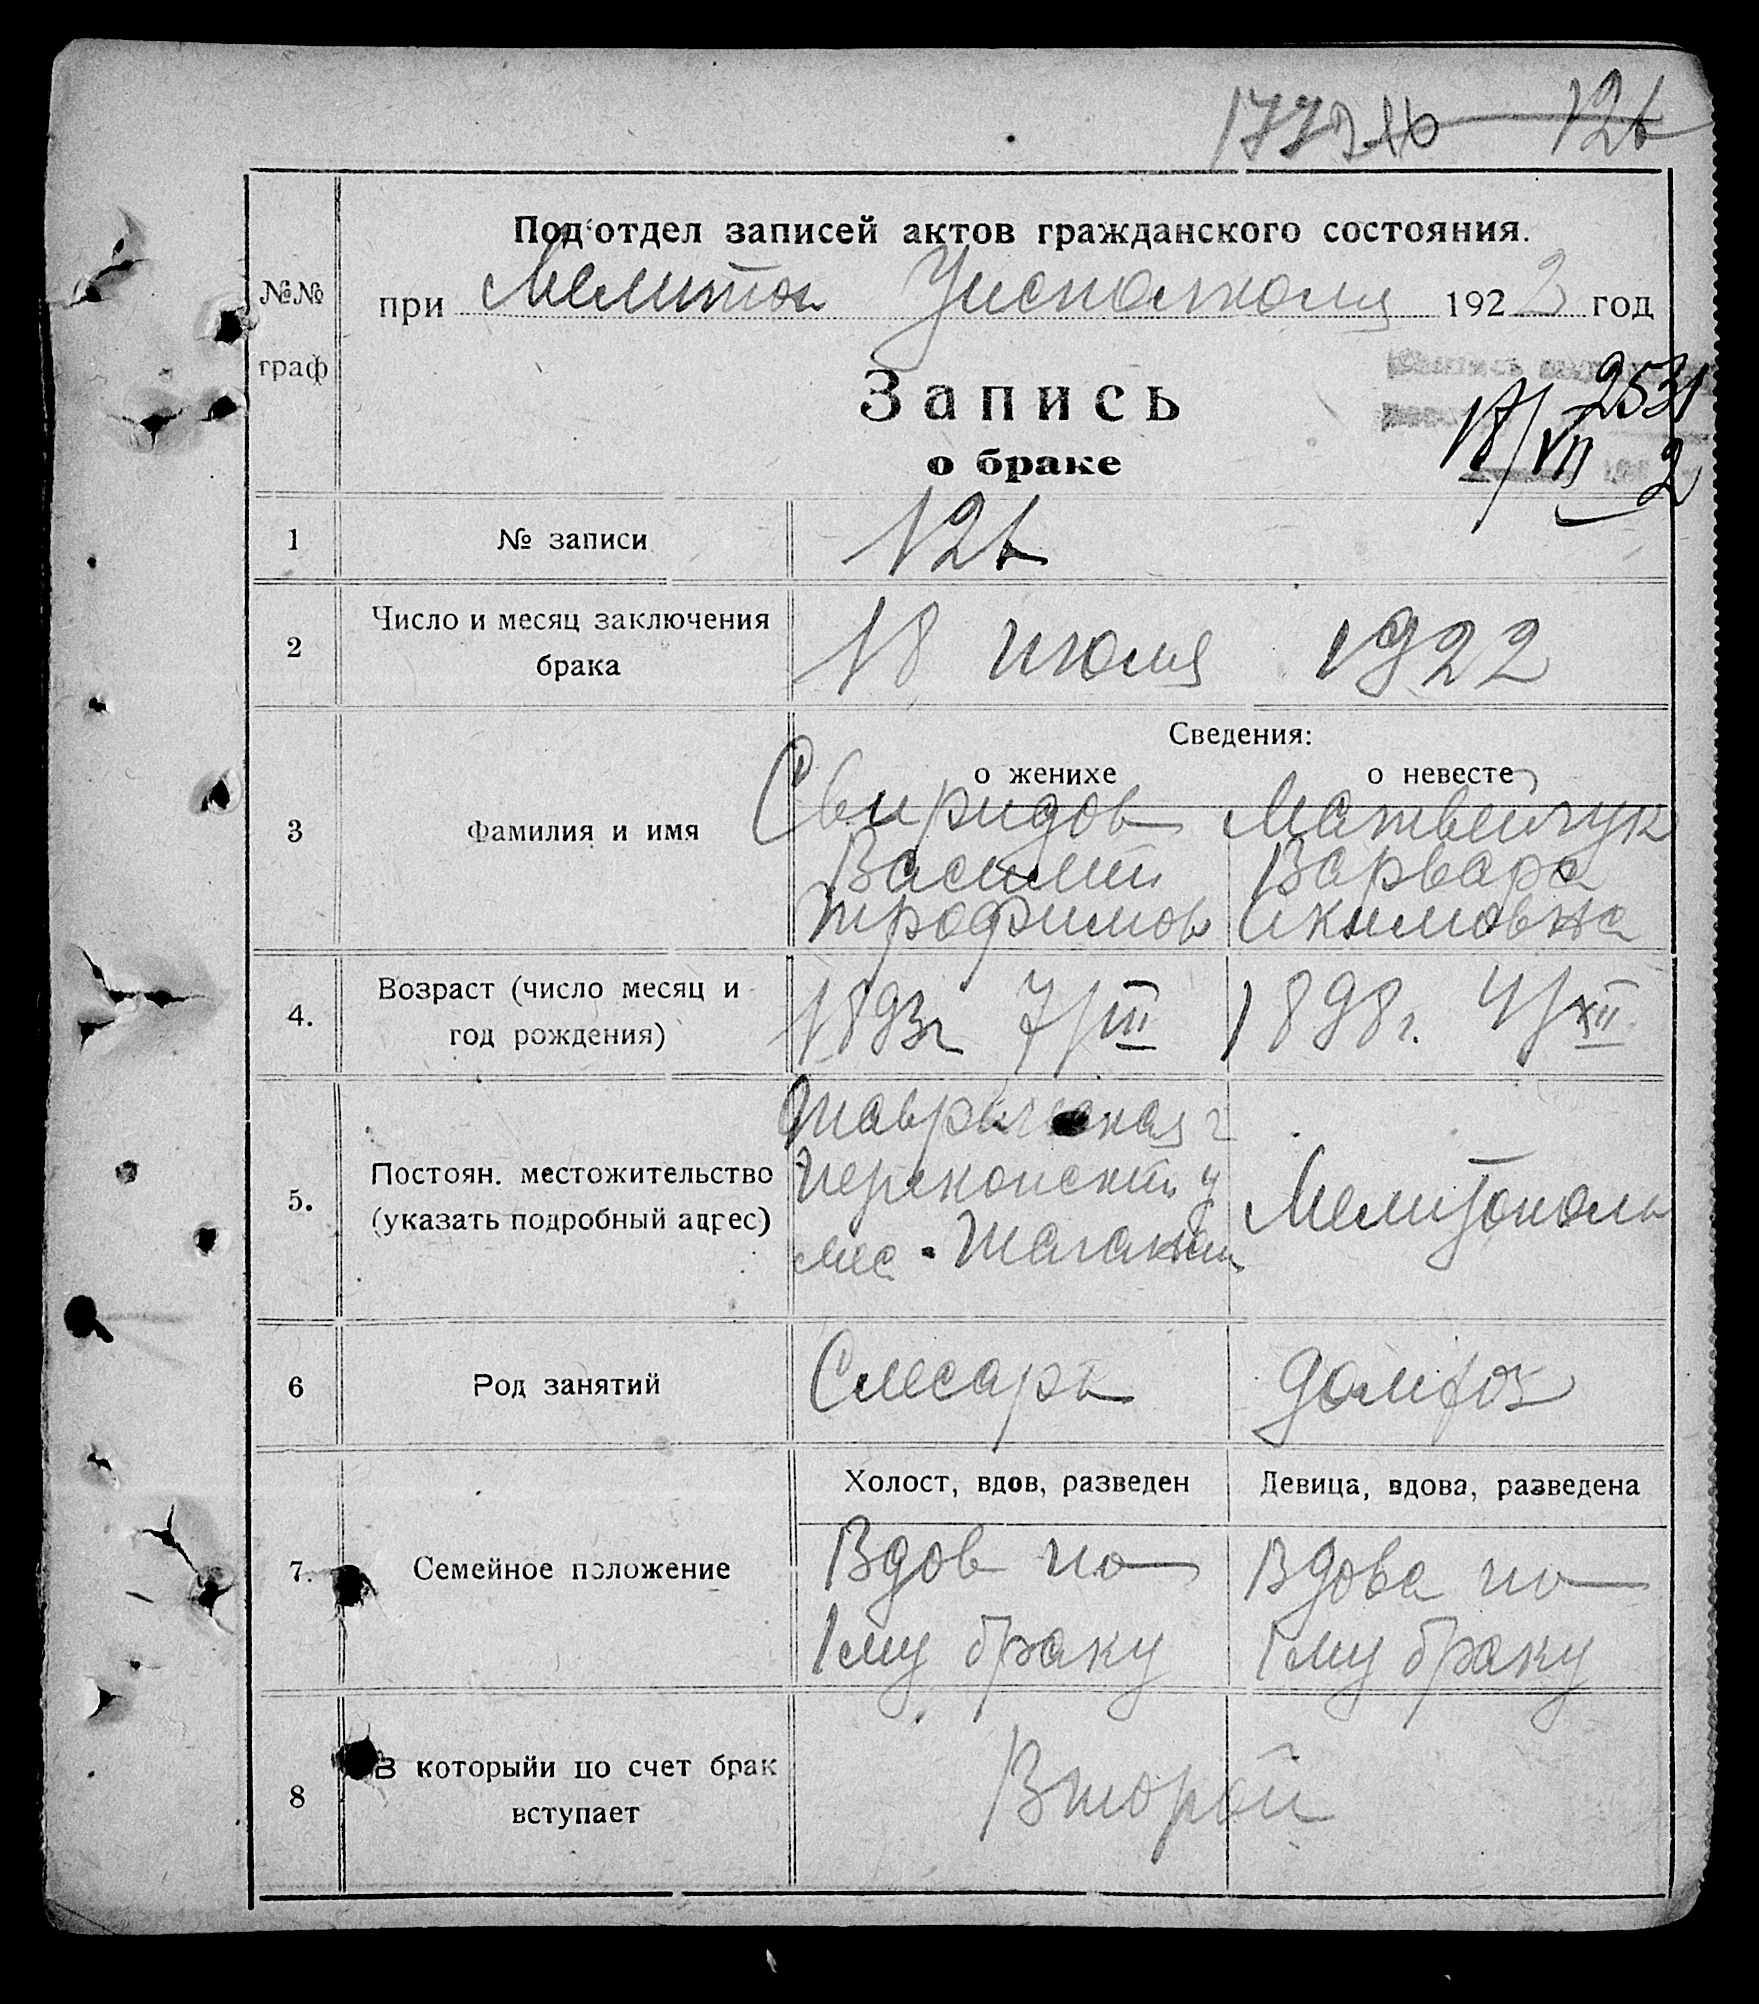 126
Под'отдел записей актов гражданского состояния.
№№ граф
при Мелитоп Уисполкома 1922 год
Запись
о браке
2531
18/VII 2
1 № записи 126
2 Число и месяц заключения брака 18 июля 1922
Сведения:
о женихе о невесте
3 Фамилия и имя
Свиридов Матвейчук
Василий Варвара
Трофимов Акимовна
4. Возраст (число месяц и
год рождения)
1893г 7/III 1898г. 4/XII
5. Постоян. местожительство
(указать подробный адрес)
Таврическая г
Перекопский у
Мелитополь
6 Род занятий Слесарь домхоз
Холост, вдов, разведен Девица, вдова, разведена
7. Семейное положение
Вдов по Вдова по
1му браку 1му браку
8 В которыйи по счет брак
вступает
Второй